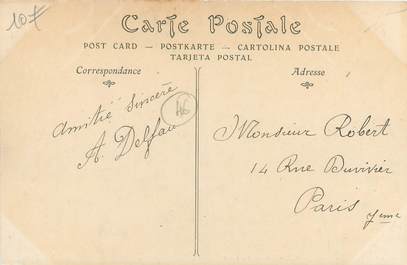 10f
Carte Postale
POST CARD — POSTKARTE — CARTOLINA POSTALE
TARJETA POSTAL
Correspondance
Adresse
Amitié sincère
A. Delfau
A6
Monsieur Robert
14 Rue Duvivier
Paris 7eme